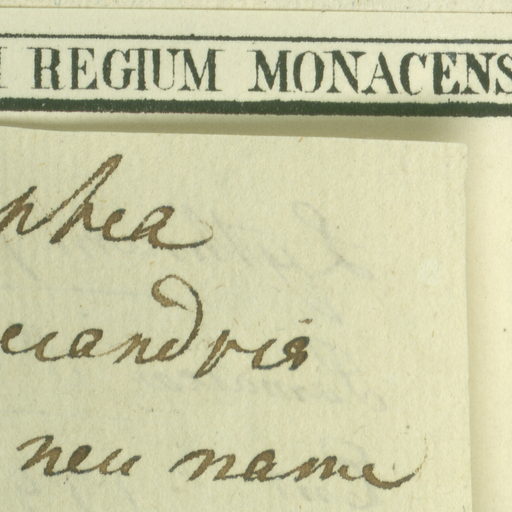 REGIUM MONACENS
phea
ecandris
neu name